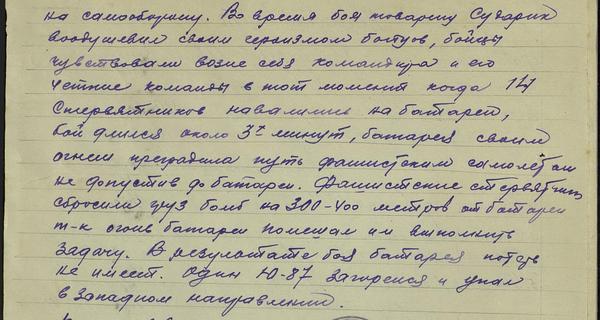 на самооборону. Во время боя товарищ Сударик
воодушевил своим героизмом бойцов, бойцы
чувствовали возле себя командира и его
четкие команды в тот момент когда 14
стервятников навалились на батарею,
бой длился около 3х минут, батарея своим
огнем преградила путь фашистским самолётам
не допустив до батареи. Фашистские стервятники
сбросили груз бомб на 300-400 метров от батареи
т-к огонь батареи помешал им выполнить
задачу. В результате боя батарея потерь
не имеет. Один Ю-87 загорелся и упал
в западном направлении.